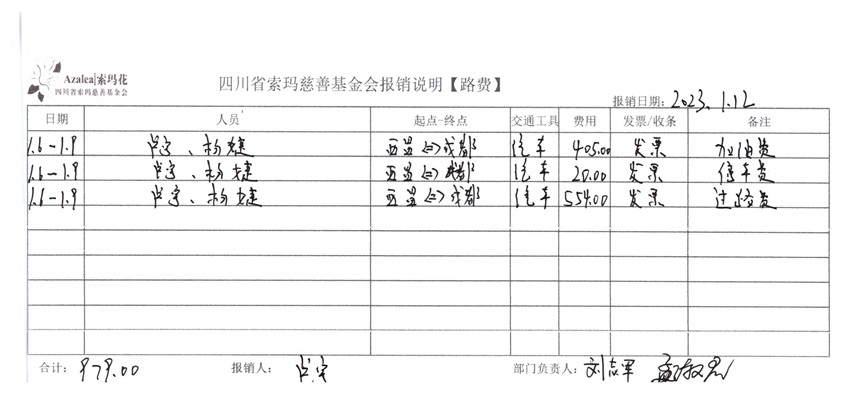 Azalea|索玛花
四川省索玛慈善基金会
四川省索玛慈善基金会报销说明【路费】
报销日期: 2023.1.12
日期 人员 起点-终点 交通工具 费用 发票/收条 备注
1.6-1.9 杨婕 西昌⇔成都 汽车 405.00 发票 加油费
1.6-1.9 杨婕 西昌⇔成都 汽车 20.00 发票 停车费
1.6-1.9 杨婕 西昌⇔成都 汽车 554.00 发票 过路费
合计: 979.00 报销人: 部门负责人: 刘志军